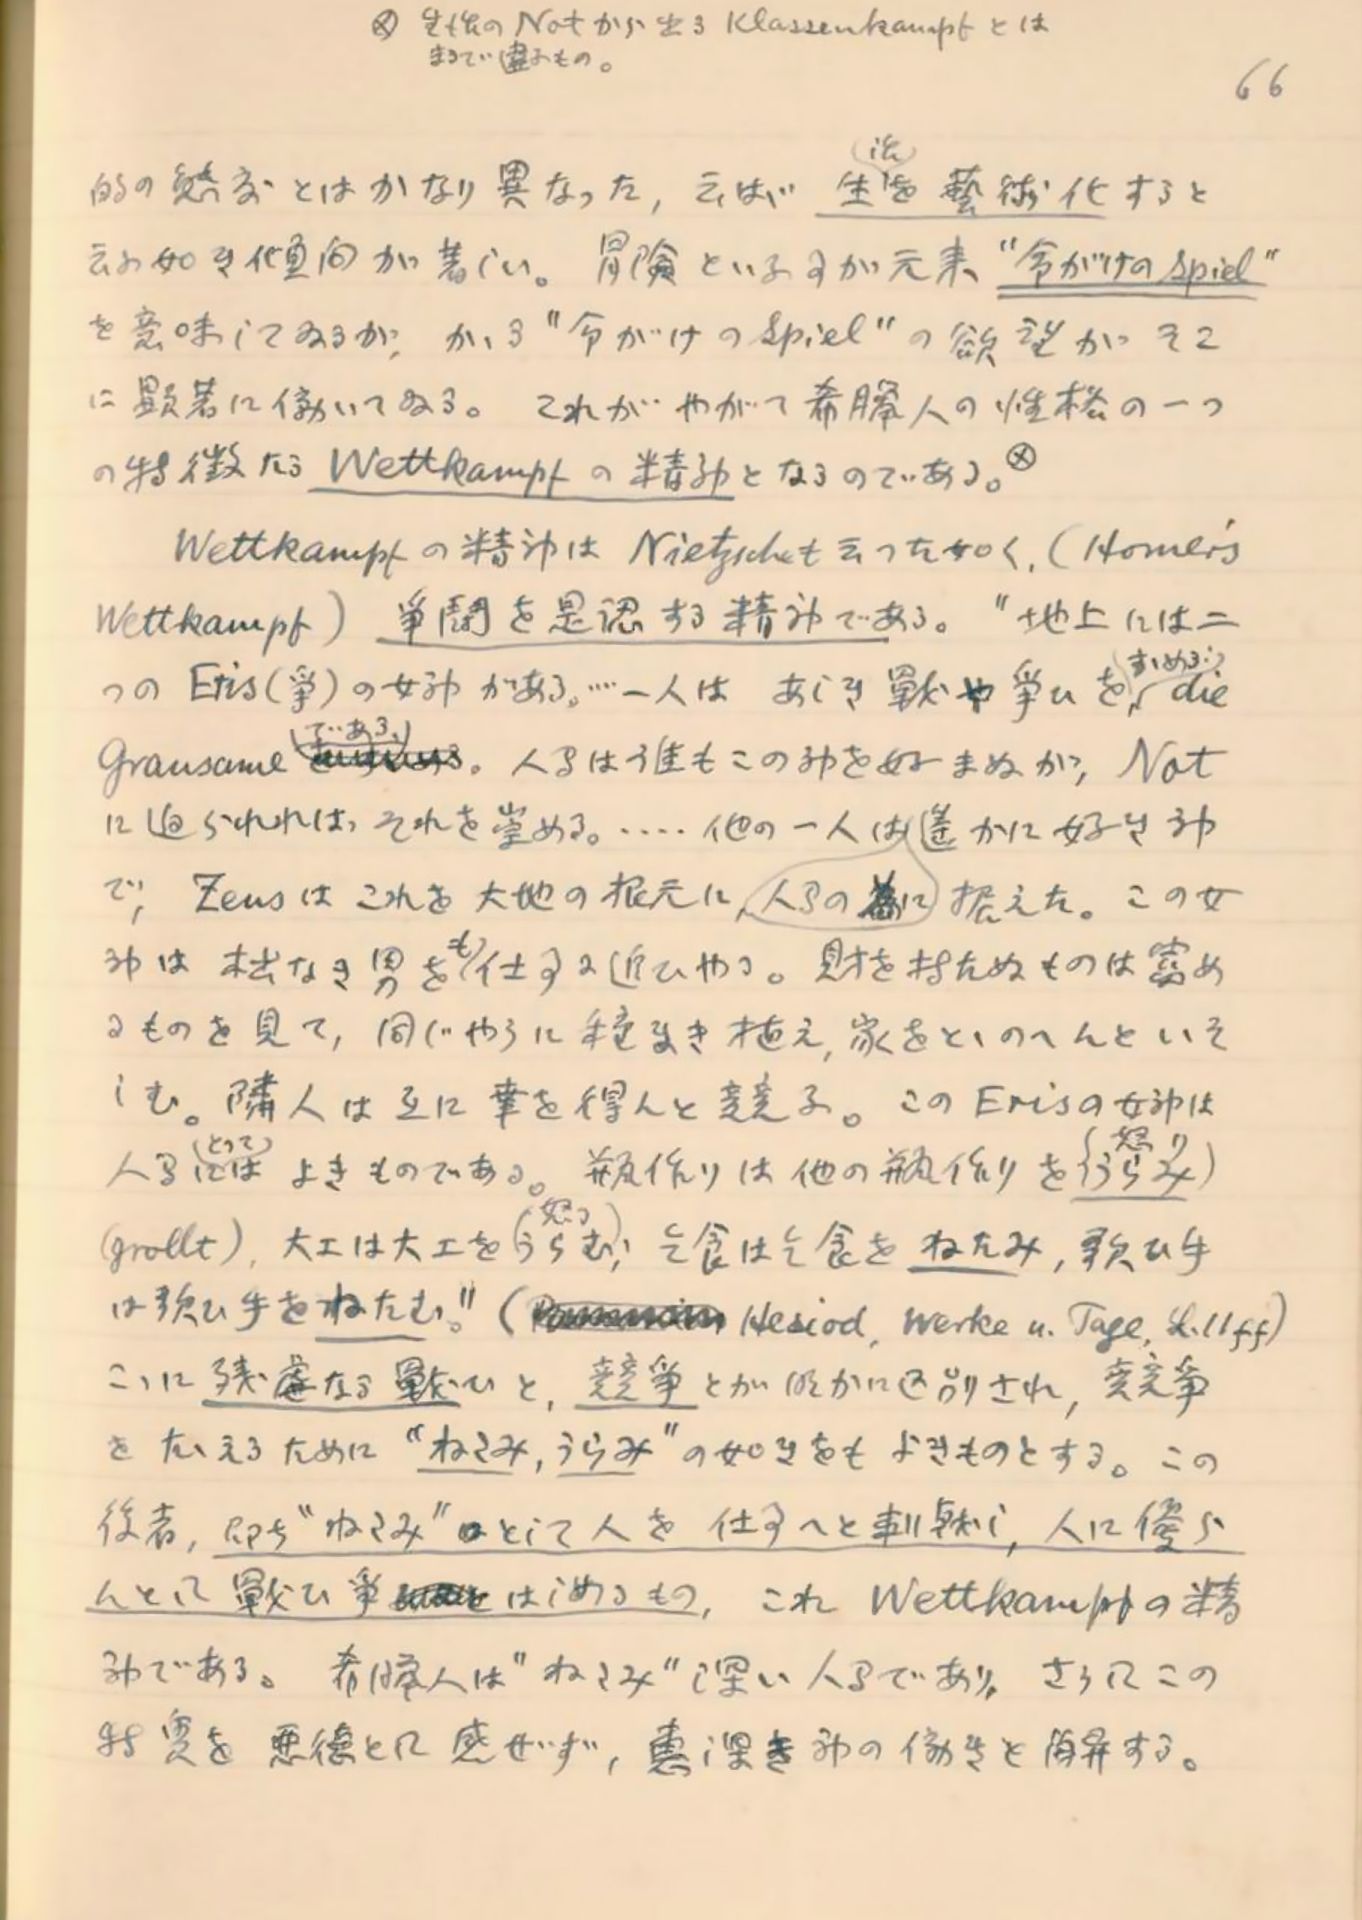 ⊗ 生活の Not から出る Klassenkampf とは
まるで違ふもの。
66
的の態度とはかなり異なった, 云はゞ 生(活)を藝術化すると
云ふ如き傾向が著しい。 冒険といふのが元来 "命がけの Spiel"
を意味してゐるが, かゝる "命がけの Spiel" の欲望が そこ
に顕著に働いてゐる。 これが やがて希臘人の性格の一つ
の特徴たる Wettkampf の精神となるのである。⊗
Wettkampf の精神は Nietzsche も云った如く, (Homer's
Wettkampf) 爭鬪を是認する精神である。 "地上には二
つの Eris (爭) の女神がある。‥‥一人は あしき戰や爭ひを(すゝめる), die
Grausame (である)。 人間は誰もこの神を好まぬが, Not
に迫られれば, それを崇める。‥‥ 他の一人は遙かに好き神
で, Zeus はこれを大地の根元に, 人間の為に据えた。 この女
神は 拙なき男をも仕事に追ひやる。 財を持たぬものは富め
るものを見て, 同じやうに種まき植え, 家をとゝのへんといそ
しむ。 隣人は互に幸を得んと競ふ。 この Eris の女神は
人間には(とって) よきものである。 瓶作りは他の瓶作りを(うらみ) (怒り)
(grollt), 大工は大工を(うらむ) (怒る); 乞食は乞食をねたみ, 歌ひ手
は歌ひ手をねたむ。" ( Hesiod, Werke u. Tage, 11 ff)
こゝに残虐なる戰ひと, 競爭とが明かに区別され, 競爭
をたゝえるために "ねたみ, うらみ" の如きをもよきものとする。 この
後者, 即ち "ねたみ" として人を 仕事へと刺戟し, 人に優ら
んとして 戰ひ爭はしめるもの, これ Wettkampf の精
神である。 希臘人は "ねたみ" 深い人間であり, さらにこの
特質を悪徳として感ぜず, 恵深き神の働きと解する。